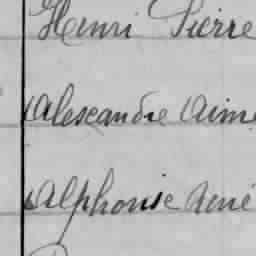 Henri Pierre
Alexandre Aimé
Alphonse Aimé